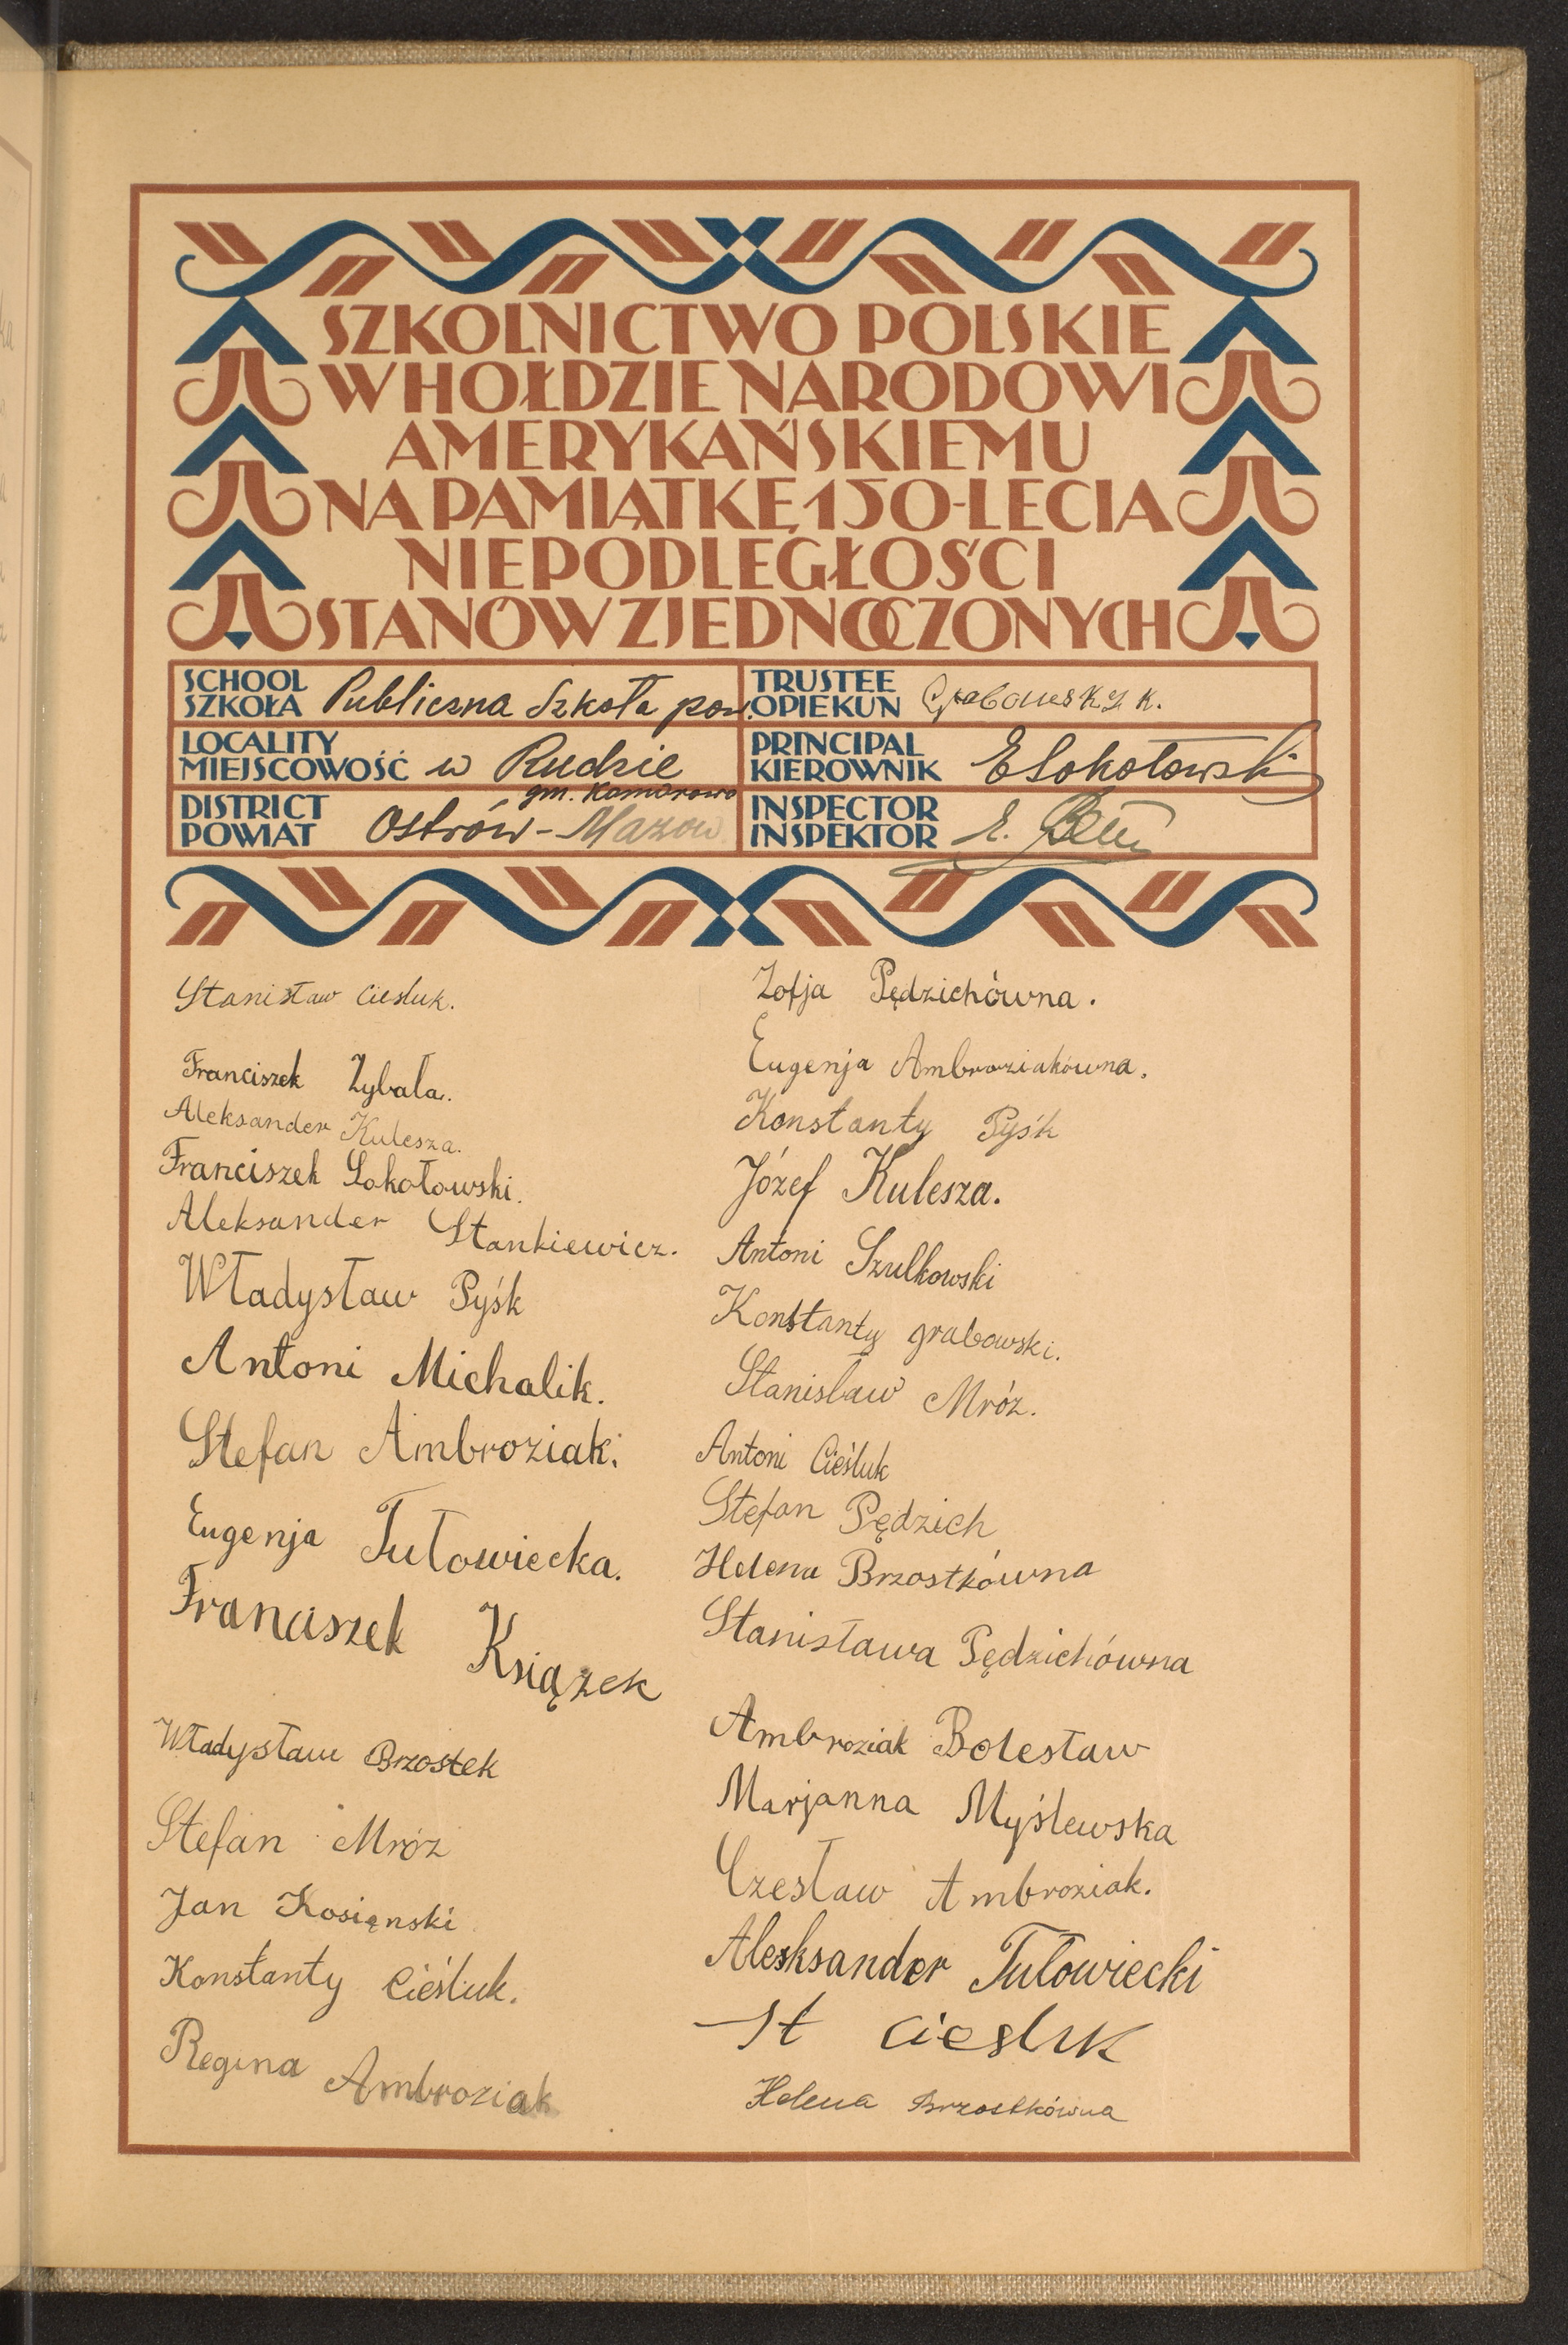 SZKOLNICTWO POLSKIE
W HOŁDZIE NARODOWI
AMERYKAŃSKIEMU
NA PAMIĄTKĘ 150-LECIA
NIEPODLEGŁOŚCI
STANÓW ZJEDNOCZONYCH
SCHOOL
SZKOŁA Publiczna Szkoła pow.
TRUSTEE
OPIEKUN Grabowski K.
LOCALITY
MIEJSCOWOŚĆ w Rudzie
gm. Komorowo
PRINCIPAL
KIEROWNIK ESokołowski
DISTRICT
POWIAT Ostrów-Mazow
INSPECTOR
INSPEKTOR E.
Stanisław Ciesluk.
Franciszek Zybała.
Aleksander Kulesza.
Franciszek Sokołowski.
Aleksander Stankiewicz.
Władysław Pyśk
Antoni Michalik.
Stefan Ambroziak.
Eugenja Tułowiecka.
Franciszek Książek
Władysław Brzostek
Stefan Mróz
Jan Kosiąnski
Konstanty Cieśluk.
Regina Ambroziak
Zofja Pędzichówna.
Eugenja Ambroziakówna.
Konstanty Pyśk
Józef Kulesza.
Antoni Szulkowski
Konstanty grabowski.
Stanisław Mróz.
Antoni Cieśluk
Stefan Pędzich
Helena Brzostkówna
Stanisława Pędzichówna
Ambroziak Bolesław
Marjanna Myślewska
Czesław Ambroziak.
Alesksander Tułowiecki
St Ciesluk
Helena Brzostkówna